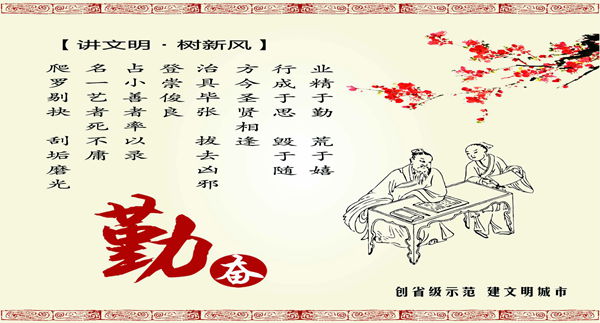 【讲文明·树新风】
业精于勤 荒于嬉
行成于思 毁于随
方今圣贤相逢
治具毕张 拔去凶邪
登崇俊良
占小善者率以录
名一艺者死不庸
爬罗剔抉 刮垢磨光
勤奋
创省级示范 建文明城市